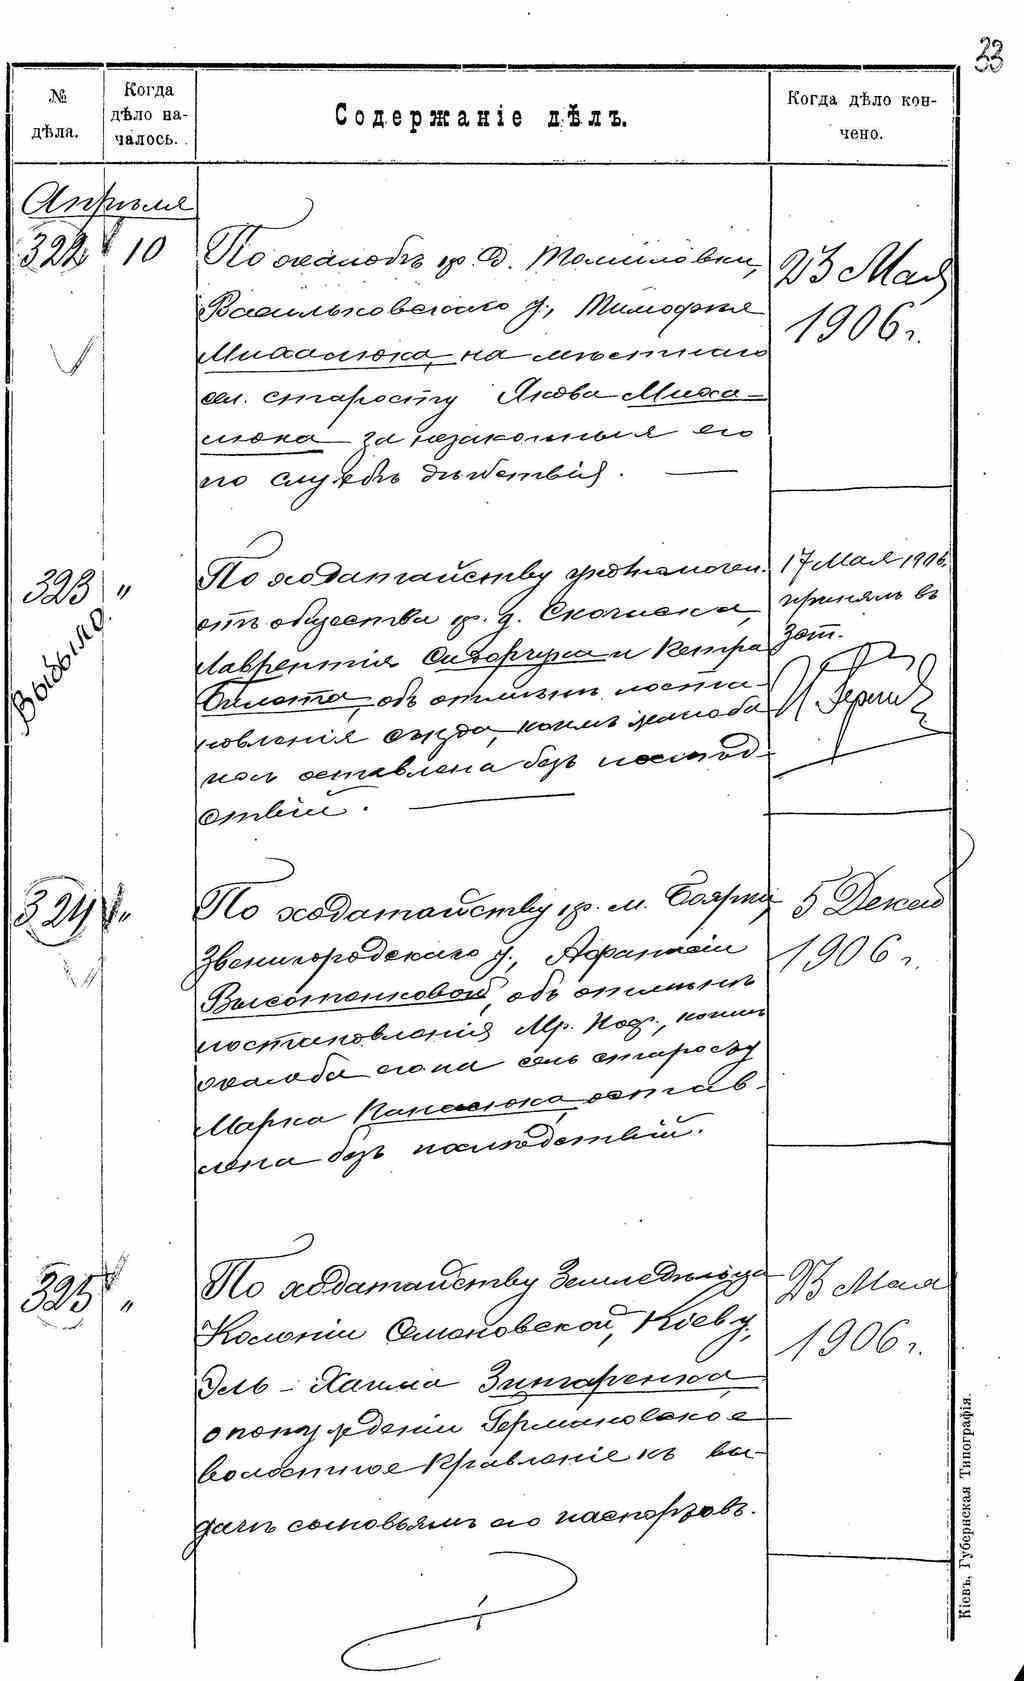 33
№ дѣла.
Когда дѣло началось.
Содержаніе дѣлъ.
Когда дѣло кончено.
Апрѣля
322 10
По жалобѣ кр. д. Томиловки,
Васильковскаго у., Тимофея
Михалюка, на мѣстнаго
сел. старосту Якова Миха-
люка за незаконныя его
по службѣ дѣйствія.
23 Мая
1906 г.
323 "
Выбыло.
По ходатайству уполномочен.
отъ общества кр. д.
Лаврентія Сидорчука и Петра
объ отмѣнѣ поста-
новленія съѣзда, коимъ жалоба
ихъ оставлена безъ послѣд-
ствій.
17 Мая 1906
принялъ въ
324 "
По ходатайству кр. м. Боярки,
Звенигородскаго у., Афанасіи
Высотенковой, объ отмѣнѣ
постановленія Мр. Поср., коимъ
жалоба ея на сель старосту
Марка оставлена
безъ послѣдствій.
5 Декаб
1906 г.
325 "
По ходатайству Земледѣльца
Колоніи Семеновской, Кіев у.,
Эль-Хаима Зингаренка
о понужденіи Германовское
волостное Правленіе къ вы-
дачѣ сыновьямъ его паспортовъ.
23 Мая
1906 г.
Кіевъ, Губернская Типографія.